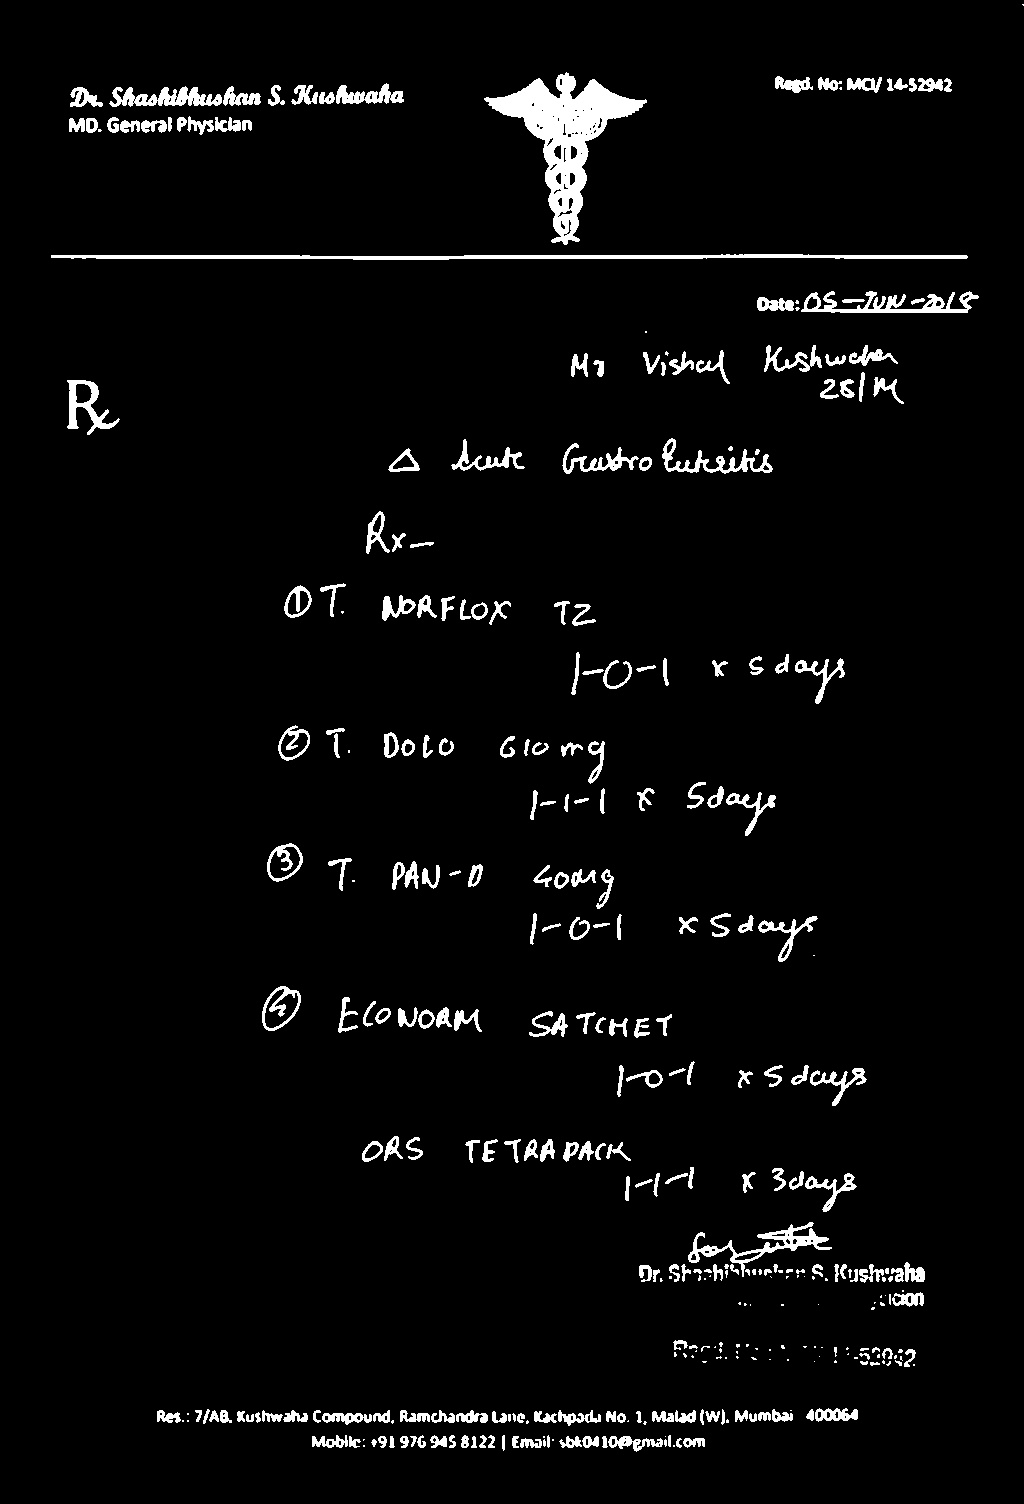 Dr. Shashibhushan S. Kushwaha
MD. General Physician
Regd. No: MCI/ 14-52942
Date: 05-JUN-2018
Mr Vishal Kushwaha
28/M
Rx
△ Acute Gastro Enteritis
Rx—
① T. NORFLOX TZ
1-0-1 x 5 days
② T. DOLO 610 mg
1-1-1 x 5days
③ T. PAN-D 40mg
1-0-1 x 5days
④ ECONORM SATCHET
1-0-1 x 5days
ORS TETRAPACK
1-1-1 x 3days
Dr. Shashibhushan S. Kushwaha
Regd. 14-52942
Res.: 7/AB, Kushwaha Compound, Ramchandra Lane, Kachpada No. 1, Malad (W), Mumbai 400064
Mobile: +91 976 945 8122 | Email: sbk0410@gmail.com